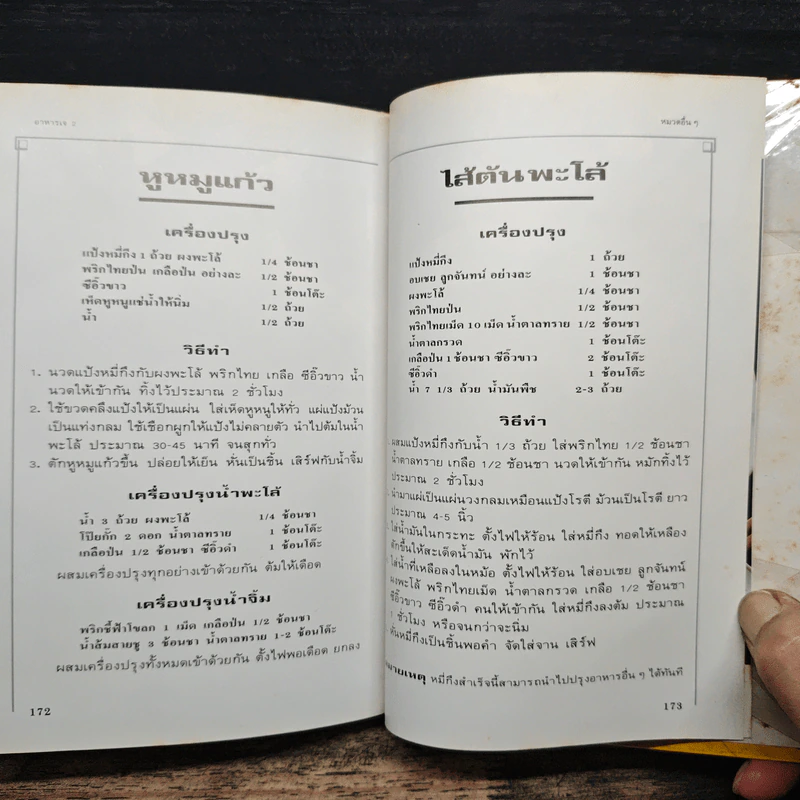 อาหารเจ 2
หูหมูแก้ว
เครื่องปรุง
แป้งหมี่กึง 1 ถ้วย ผงพะโล้ 1/4 ช้อนชา
พริกไทยป่น เกลือป่น อย่างละ 1/2 ช้อนชา
ซีอิ๊วขาว 1 ช้อนโต๊ะ
เห็ดหูหนูแช่น้ำให้นิ่ม 1/2 ถ้วย
น้ำ 1/2 ถ้วย
วิธีทำ
1. นวดแป้งหมี่กึงกับผงพะโล้ พริกไทย เกลือ ซีอิ๊วขาว น้ำ
นวดให้เข้ากัน ทิ้งไว้ประมาณ 2 ชั่วโมง
2. ใช้ขวดคลึงแป้งให้เป็นแผ่น ใส่เห็ดหูหนูให้ทั่ว แผ่แป้งม้วน
เป็นแท่งกลม ใช้เชือกผูกให้แป้งไม่คลายตัว นำไปต้มในน้ำ
พะโล้ ประมาณ 30-45 นาที จนสุกทั่ว
3. ตักหูหมูแก้วขึ้น ปล่อยให้เย็น หั่นเป็นชิ้น เสิร์ฟกับน้ำจิ้ม
เครื่องปรุงน้ำพะโล้
น้ำ 3 ถ้วย ผงพะโล้ 1/4 ช้อนชา
โป๊ยกั๊ก 2 ดอก น้ำตาลทราย 1 ช้อนโต๊ะ
เกลือป่น 1/2 ช้อนชา ซีอิ๊วดำ 1 ช้อนโต๊ะ
ผสมเครื่องปรุงทุกอย่างเข้าด้วยกัน ต้มให้เดือด
เครื่องปรุงน้ำจิ้ม
พริกชี้ฟ้าโขลก 1 เม็ด เกลือป่น 1/2 ช้อนชา
น้ำส้มสายชู 3 ช้อนชา น้ำตาลทราย 1-2 ช้อนโต๊ะ
ผสมเครื่องปรุงทั้งหมดเข้าด้วยกัน ตั้งไฟพอเดือด ยกลง
172
หมวดอื่น ๆ
ไส้ตันพะโล้
เครื่องปรุง
แป้งหมี่กึง 1 ถ้วย
อบเชย ลูกจันทน์ อย่างละ 1 ช้อนชา
ผงพะโล้ 1/4 ช้อนชา
พริกไทยป่น 1/2 ช้อนชา
พริกไทยเม็ด 10 เม็ด น้ำตาลทราย 1/2 ช้อนชา
น้ำตาลกรวด 1 ช้อนโต๊ะ
เกลือป่น 1 ช้อนชา ซีอิ๊วขาว 2 ช้อนโต๊ะ
ซีอิ๊วดำ 1 ช้อนโต๊ะ
น้ำ 7 1/3 ถ้วย น้ำมันพืช 2-3 ถ้วย
วิธีทำ
ผสมแป้งหมี่กึงกับน้ำ 1/3 ถ้วย ใส่พริกไทย 1/2 ช้อนชา
น้ำตาลทราย เกลือ 1/2 ช้อนชา นวดให้เข้ากัน หมักทิ้งไว้
ประมาณ 2 ชั่วโมง
นำมาแผ่เป็นแผ่นวงกลมเหมือนแป้งโรตี ม้วนเป็นโรตี ยาว
ประมาณ 4-5 นิ้ว
ใส่น้ำมันในกระทะ ตั้งไฟให้ร้อน ใส่หมี่กึง ทอดให้เหลือง
ตักขึ้นให้สะเด็ดน้ำมัน พักไว้
ใส่น้ำที่เหลือลงในหม้อ ตั้งไฟให้ร้อน ใส่อบเชย ลูกจันทน์
ผงพะโล้ พริกไทยเม็ด น้ำตาลกรวด เกลือ 1/2 ช้อนชา
ซีอิ๊วขาว ซีอิ๊วดำ คนให้เข้ากัน ใส่หมี่กึงลงต้ม ประมาณ
1 ชั่วโมง หรือจนกว่าจะนิ่ม
หั่นหมี่กึงเป็นชิ้นพอคำ จัดใส่จาน เสิร์ฟ
หมายเหตุ หมี่กึงสำเร็จนี้สามารถนำไปปรุงอาหารอื่น ๆ ได้ทันที
173